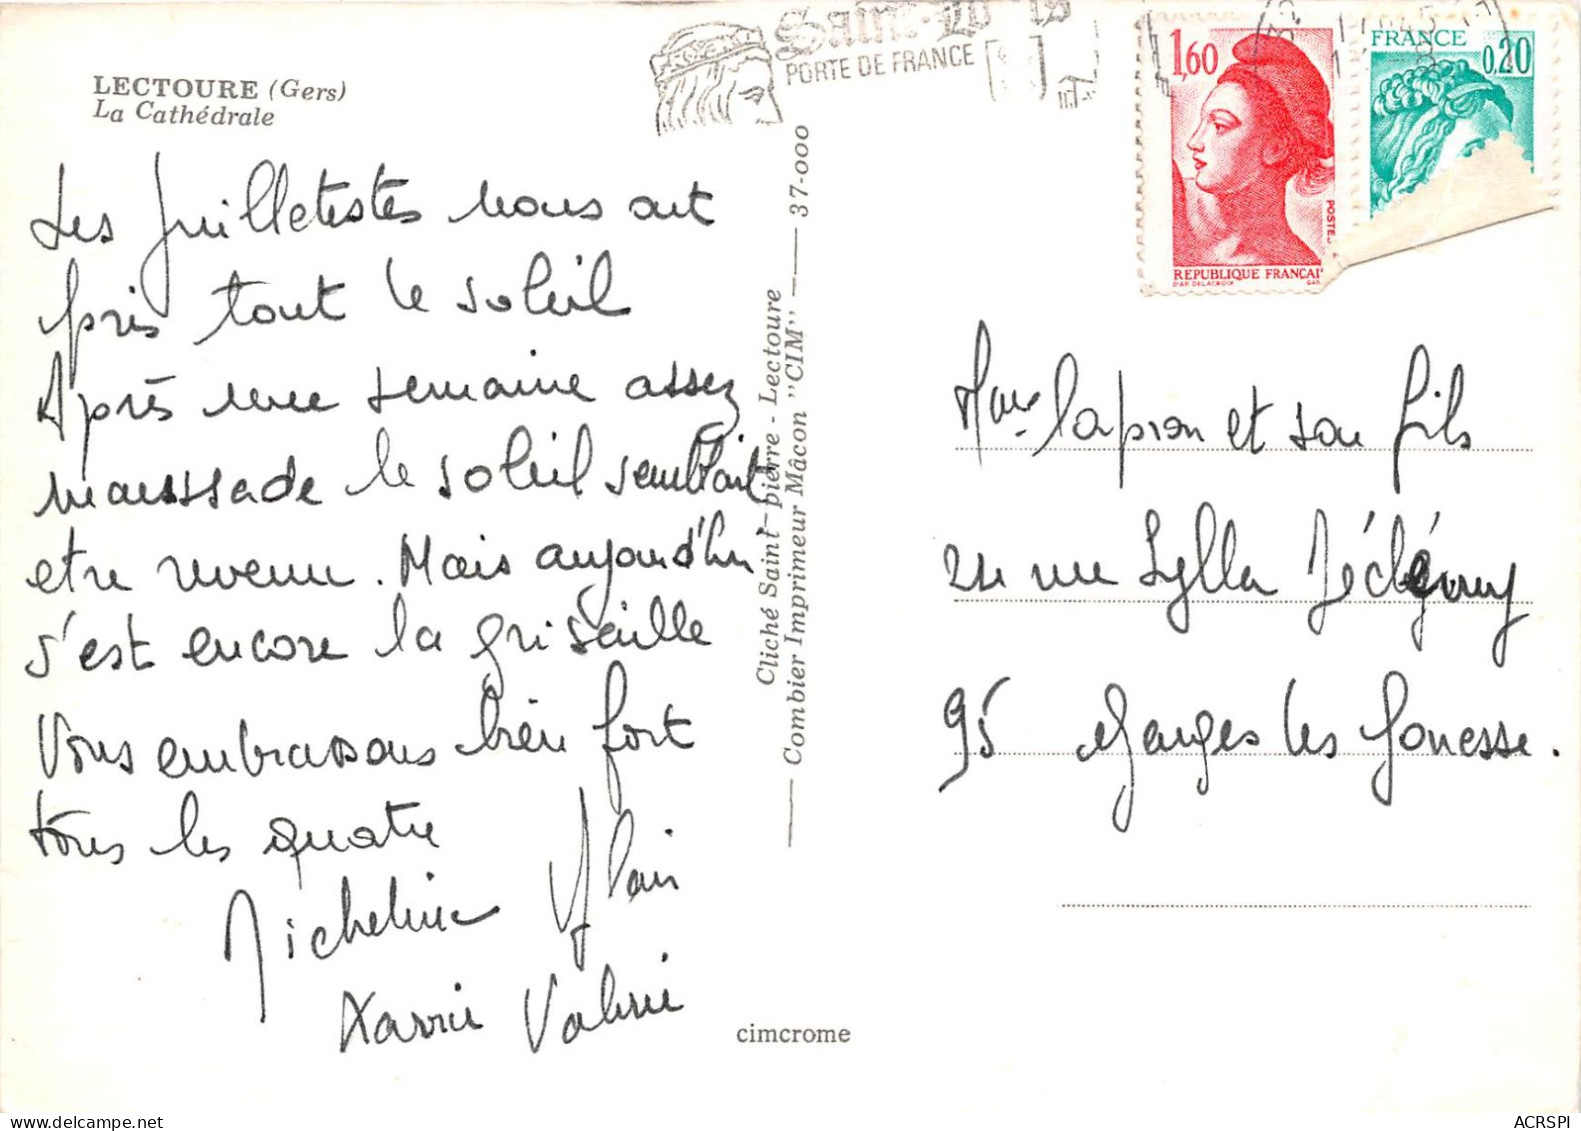 LECTOURE (Gers)
La Cathédrale
Les Juilletistes nous ont
pris tout le soleil
Après une semaine assez
maussade le soleil semblait
etre revenu. Mais aujourd'hui
s'est encore la grisaille
Vous embrassons bien fort
tous les quatre
Micheline Alain
Xavier Valérie
cimcrome
Cliché Saint-pierre - Lectoure
Combier Imprimeur Mâcon "CIM" — 37-000
Saint-Louis
PORTE DE FRANCE
1,60
POSTE
REPUBLIQUE FRANCAI
D'AP. DELACROIX
FRANCE
0,20
Mme Lapron et son fils
rue Sylla
95 Garges les Gonesse.
ACRSPI